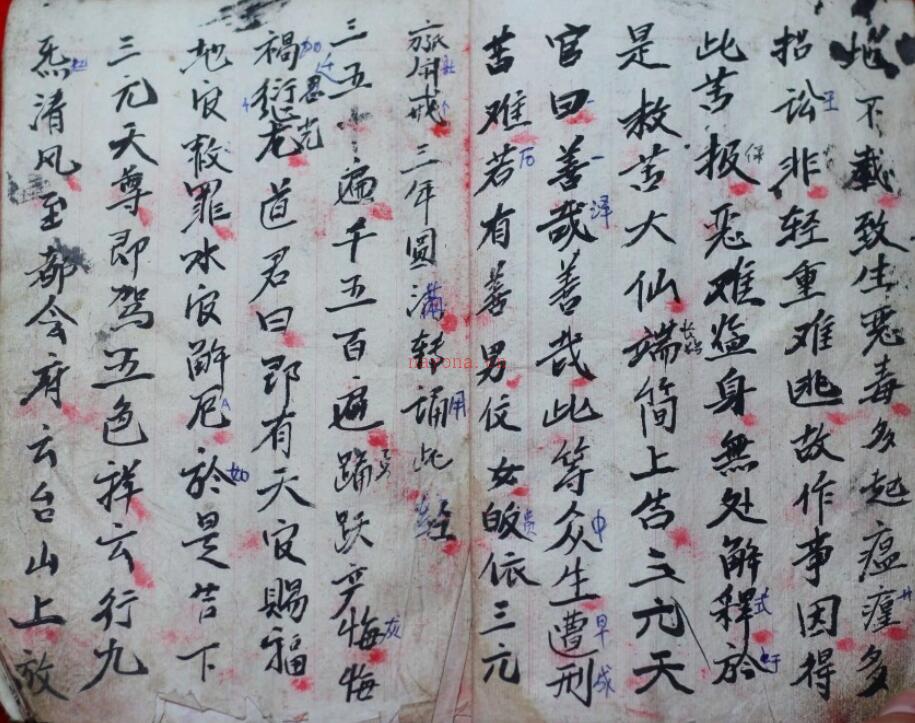 地不載致生惡毒多起瘟多
招訟非轻重难逃故作事因得
此苦报恶难监身無处解释於
是救苦大仙端简上告三元天
官曰善哉善哉此等众生遭刑
苦难若有善男伩女皈依三元
戒三年圓满转诵此經
三五遍千五百遍踊跃悔悔
禍愆道君曰即有天官賜福
地官赦罪水官解厄於是告下
三元天尊即驾五色祥云行九
炁清风至都会府云台山上放
nayona.cn